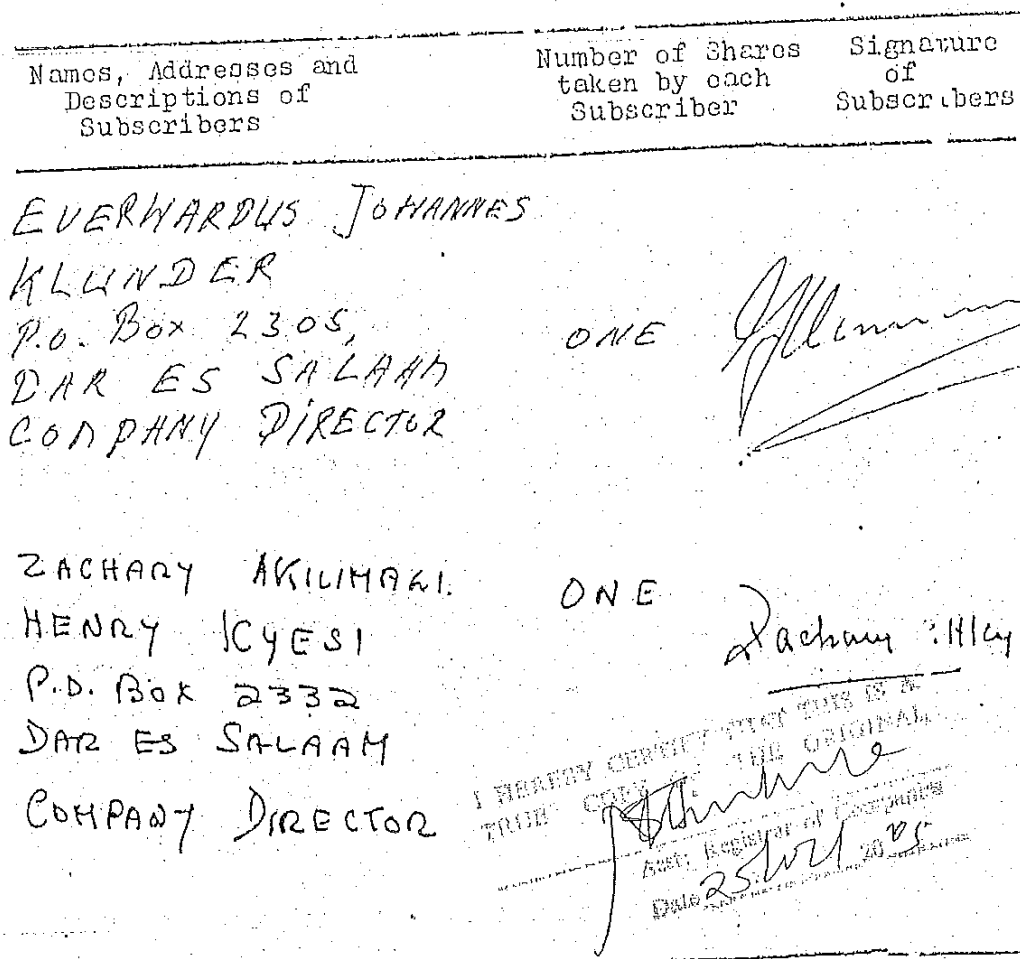 Names, Addresses and
Descriptions of
Subscribers
Number of Shares
taken by each
Subscriber
Signature
of
Subscribers
EVERWARDUS JOHANNES
KLUNDER
P.O. Box 2305,
DAR ES SALAAM
COMPANY DIRECTOR
ONE
ZACHARY AKILIMALI.
HENRY KYESI
P.O. BOX 2332
DAR ES SALAAM
COMPANY DIRECTOR
ONE
Zachary
I HEREBY CERTIFY THAT THIS IS A
TRUE COPY OF THE ORIGINAL
Asst: Registrar of Companies
Date 25 20 05